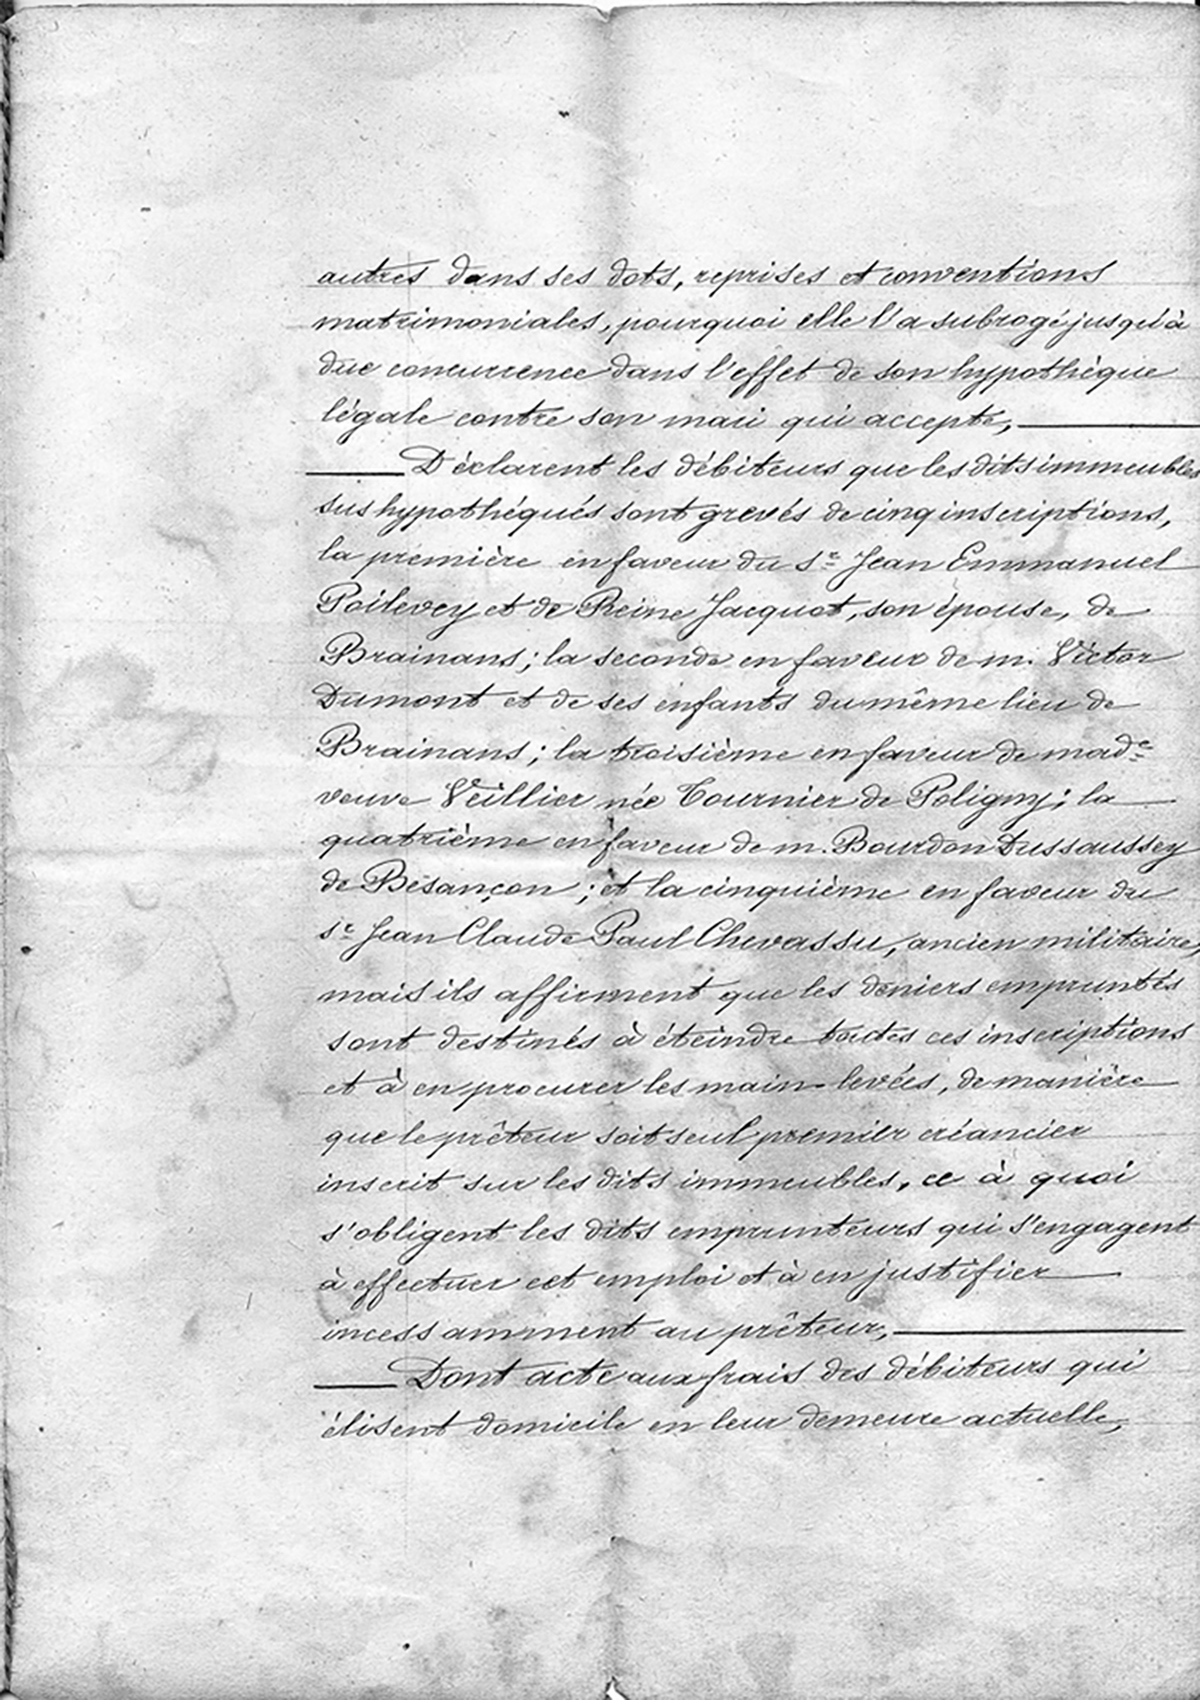 autres dans ses dots, reprises et conventions
matrimoniales, pourquoi elle l'a subrogé jusqu'à
due concurrence dans l'effet de son hypothèque
légale contre son mari qui accepte,
Déclarent les débiteurs que les dits immeubles
sus hypothéqués sont grevés de cinq inscriptions,
la première en faveur du Sr Jean Emmanuel
Poilevey et de Reine Jacquot, son épouse, de
Brainans ; la seconde en faveur de m. Victor
Dumont et de ses enfants du même lieu de
Brainans ; la troisième en faveur de made
veuve Veillier née Tournier de Poligny ; la
quatrième en faveur de m. Bourdon Dussaussey
de Besançon ; et la cinquième en faveur du
sr Jean Claude Paul Chevassu, ancien militaire,
mais ils affirment que les deniers empruntés
sont destinés à éteindre toutes ces inscriptions
et à en procurer les main-levées, de manière
que le prêteur soit seul premier créancier
inscrit sur les dits immeubles, ce à quoi
s'obligent les dits emprunteurs qui s'engagent
à effectuer cet emploi et à en justifier
incessamment au prêteur,
Dont acte aux frais des débiteurs qui
élisent domicile en leur demeure actuelle,